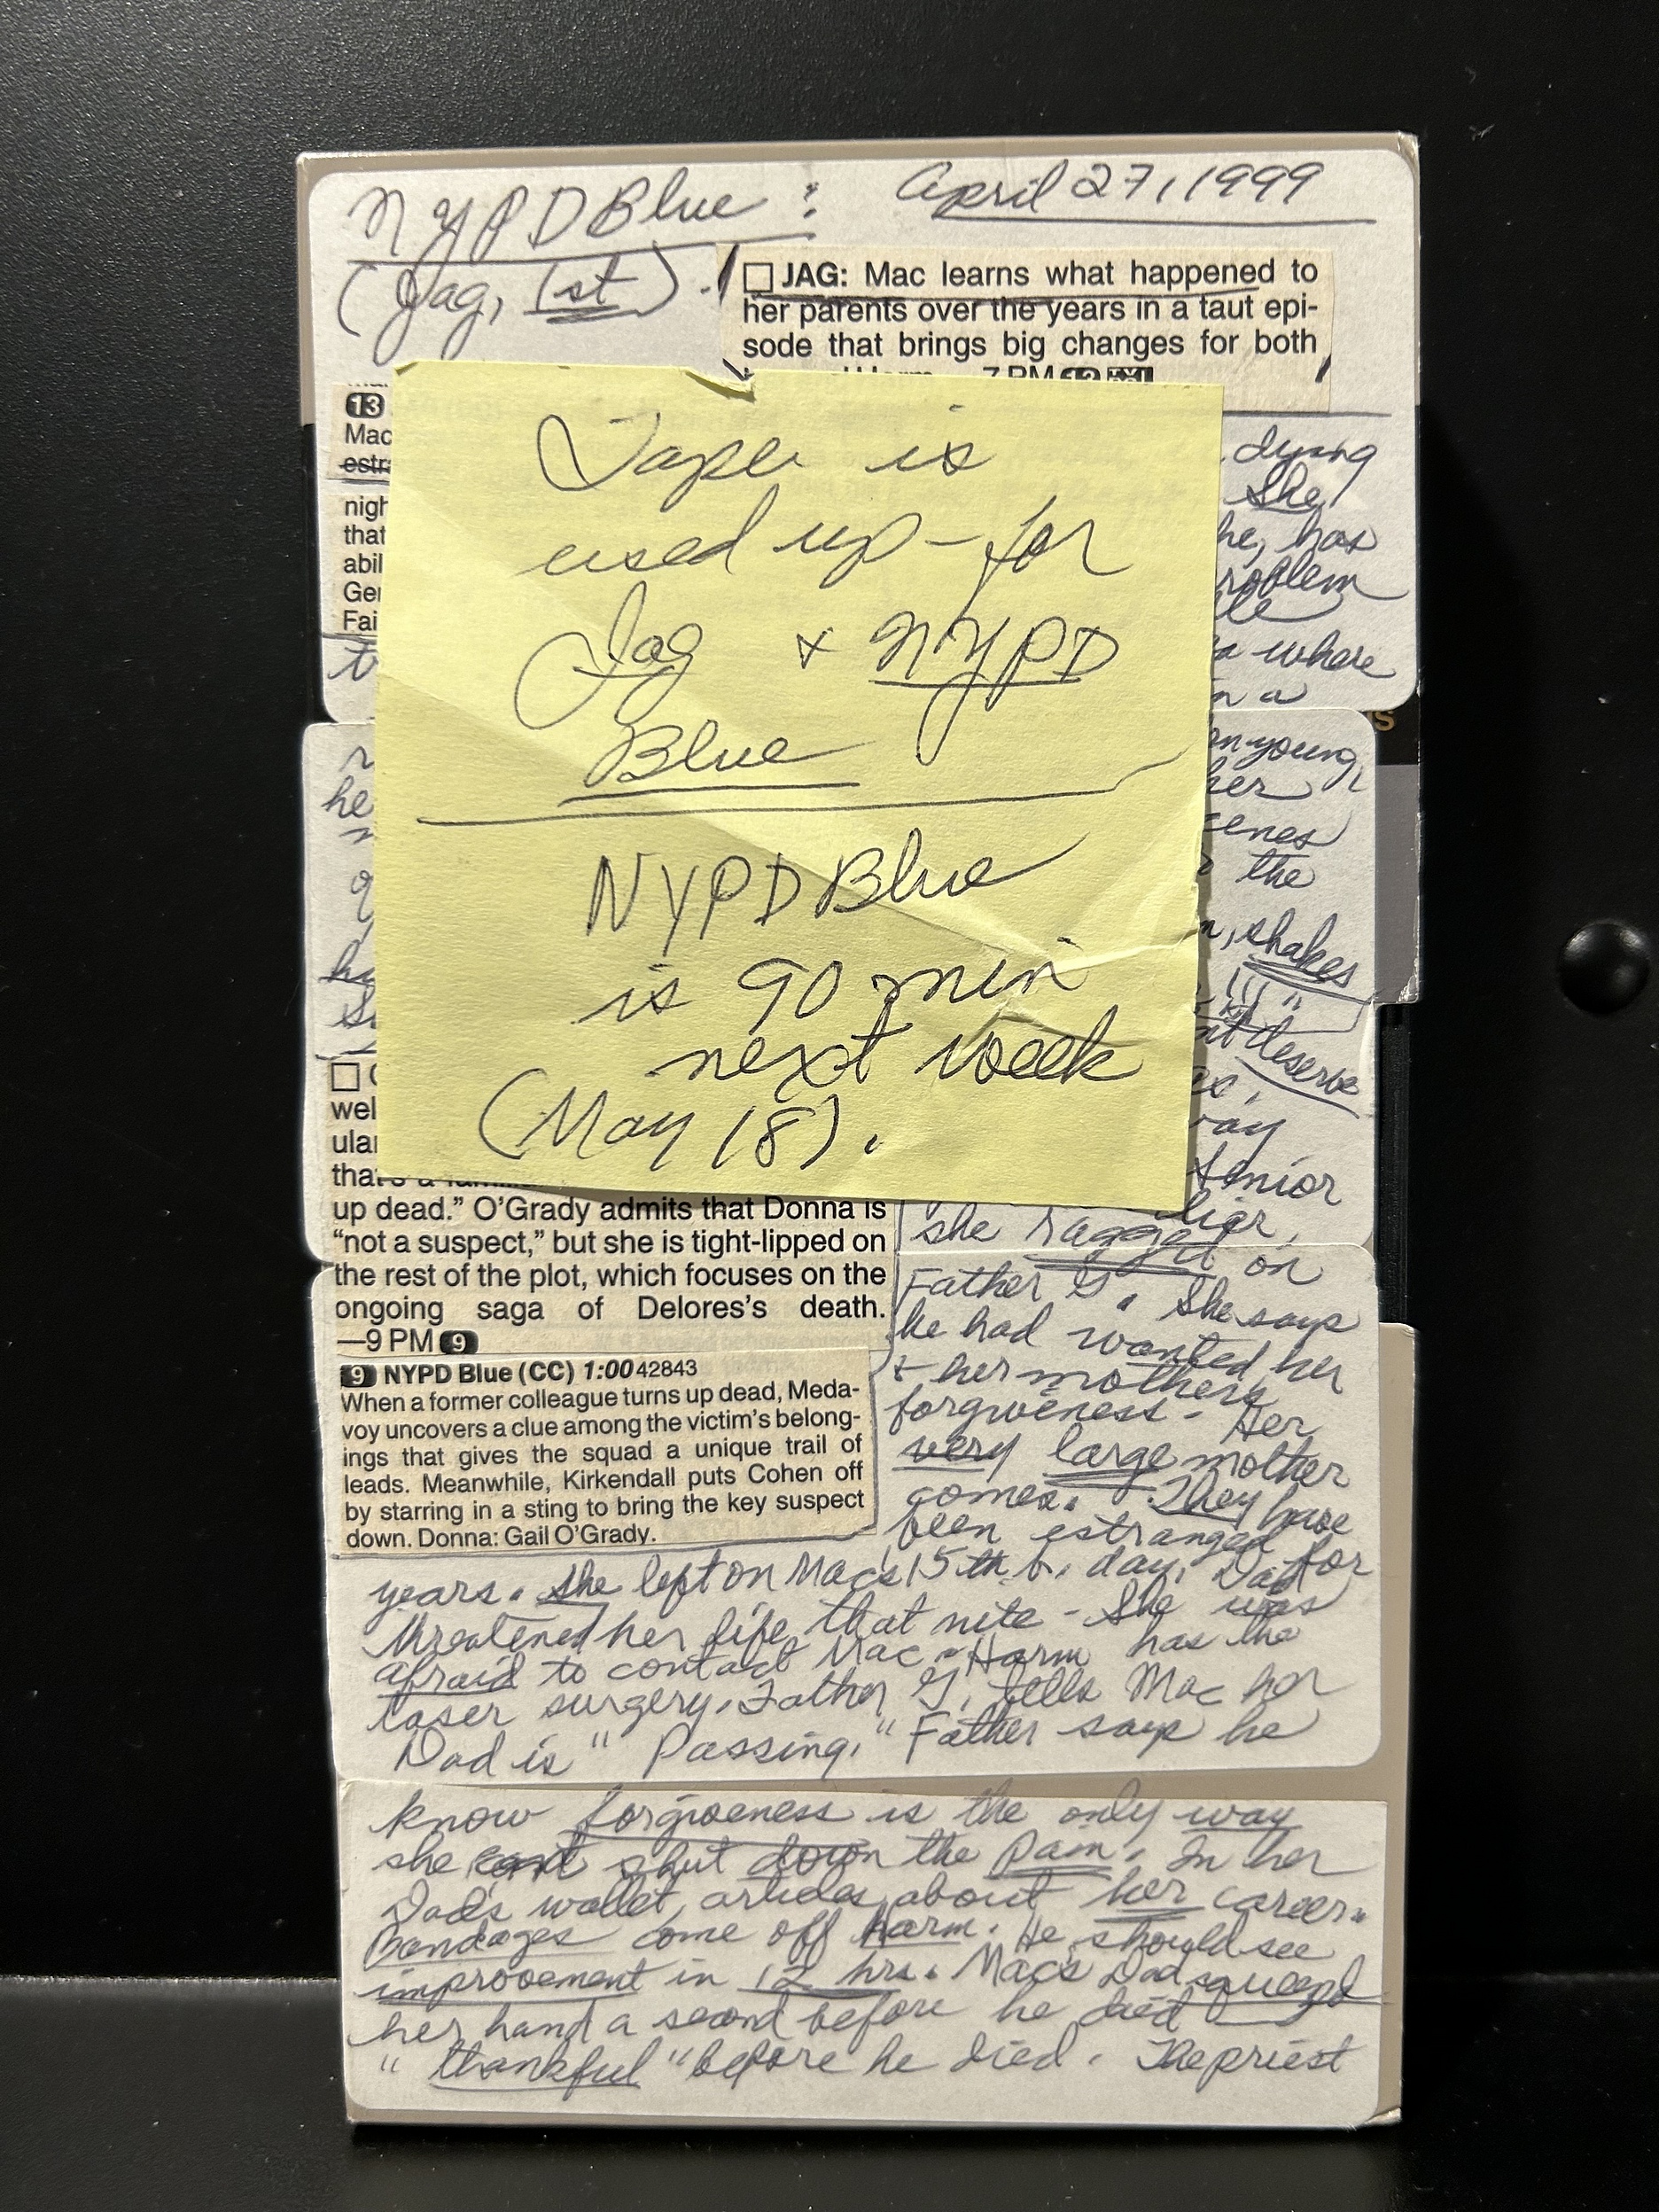 NYPD Blue: April 27, 1999
(Jag, 1st).
JAG: Mac learns what happened to
her parents over the years in a taut epi-
sode that brings big changes for both
7 PM
13
Mac
estr
nigh
that
abil
Ger
Fai
Tape is
used up - for
Jag + NYPD
Blue
NYPD Blue
is 90 min
next week
(May 18).
dying
She
he, has
problem
where
in a
young,
her
scenes
the
shakes
deserve
Senior
liar,
she ragged on
Father G. She says
he had wanted her
+ her mothers
forgiveness - Her
very large mother
comes. They have
been estranged
for
he
wel
ular
that's a
up dead." O'Grady admits that Donna is
"not a suspect," but she is tight-lipped on
the rest of the plot, which focuses on the
ongoing saga of Delores's death.
—9 PM 9
9 NYPD Blue (CC) 1:00 42843
When a former colleague turns up dead, Meda-
voy uncovers a clue among the victim's belong-
ings that gives the squad a unique trail of
leads. Meanwhile, Kirkendall puts Cohen off
by starring in a sting to bring the key suspect
down. Donna: Gail O'Grady.
years. She left on Mac's 15th b. day. Dad
threatened her life that nite - She was
afraid to contact Mac. Harm has the
laser surgery. Father G. tells Mac her
Dad is "Passing." Father says he
know forgiveness is the only way
she can shut down the pain. In her
Dad's wallet, articles about her career.
Bandages come off Harm. He should see
improvement in 12 hrs. Mac's Dad squeezed
her hand a second before he died
"thankful" before he died. The priest